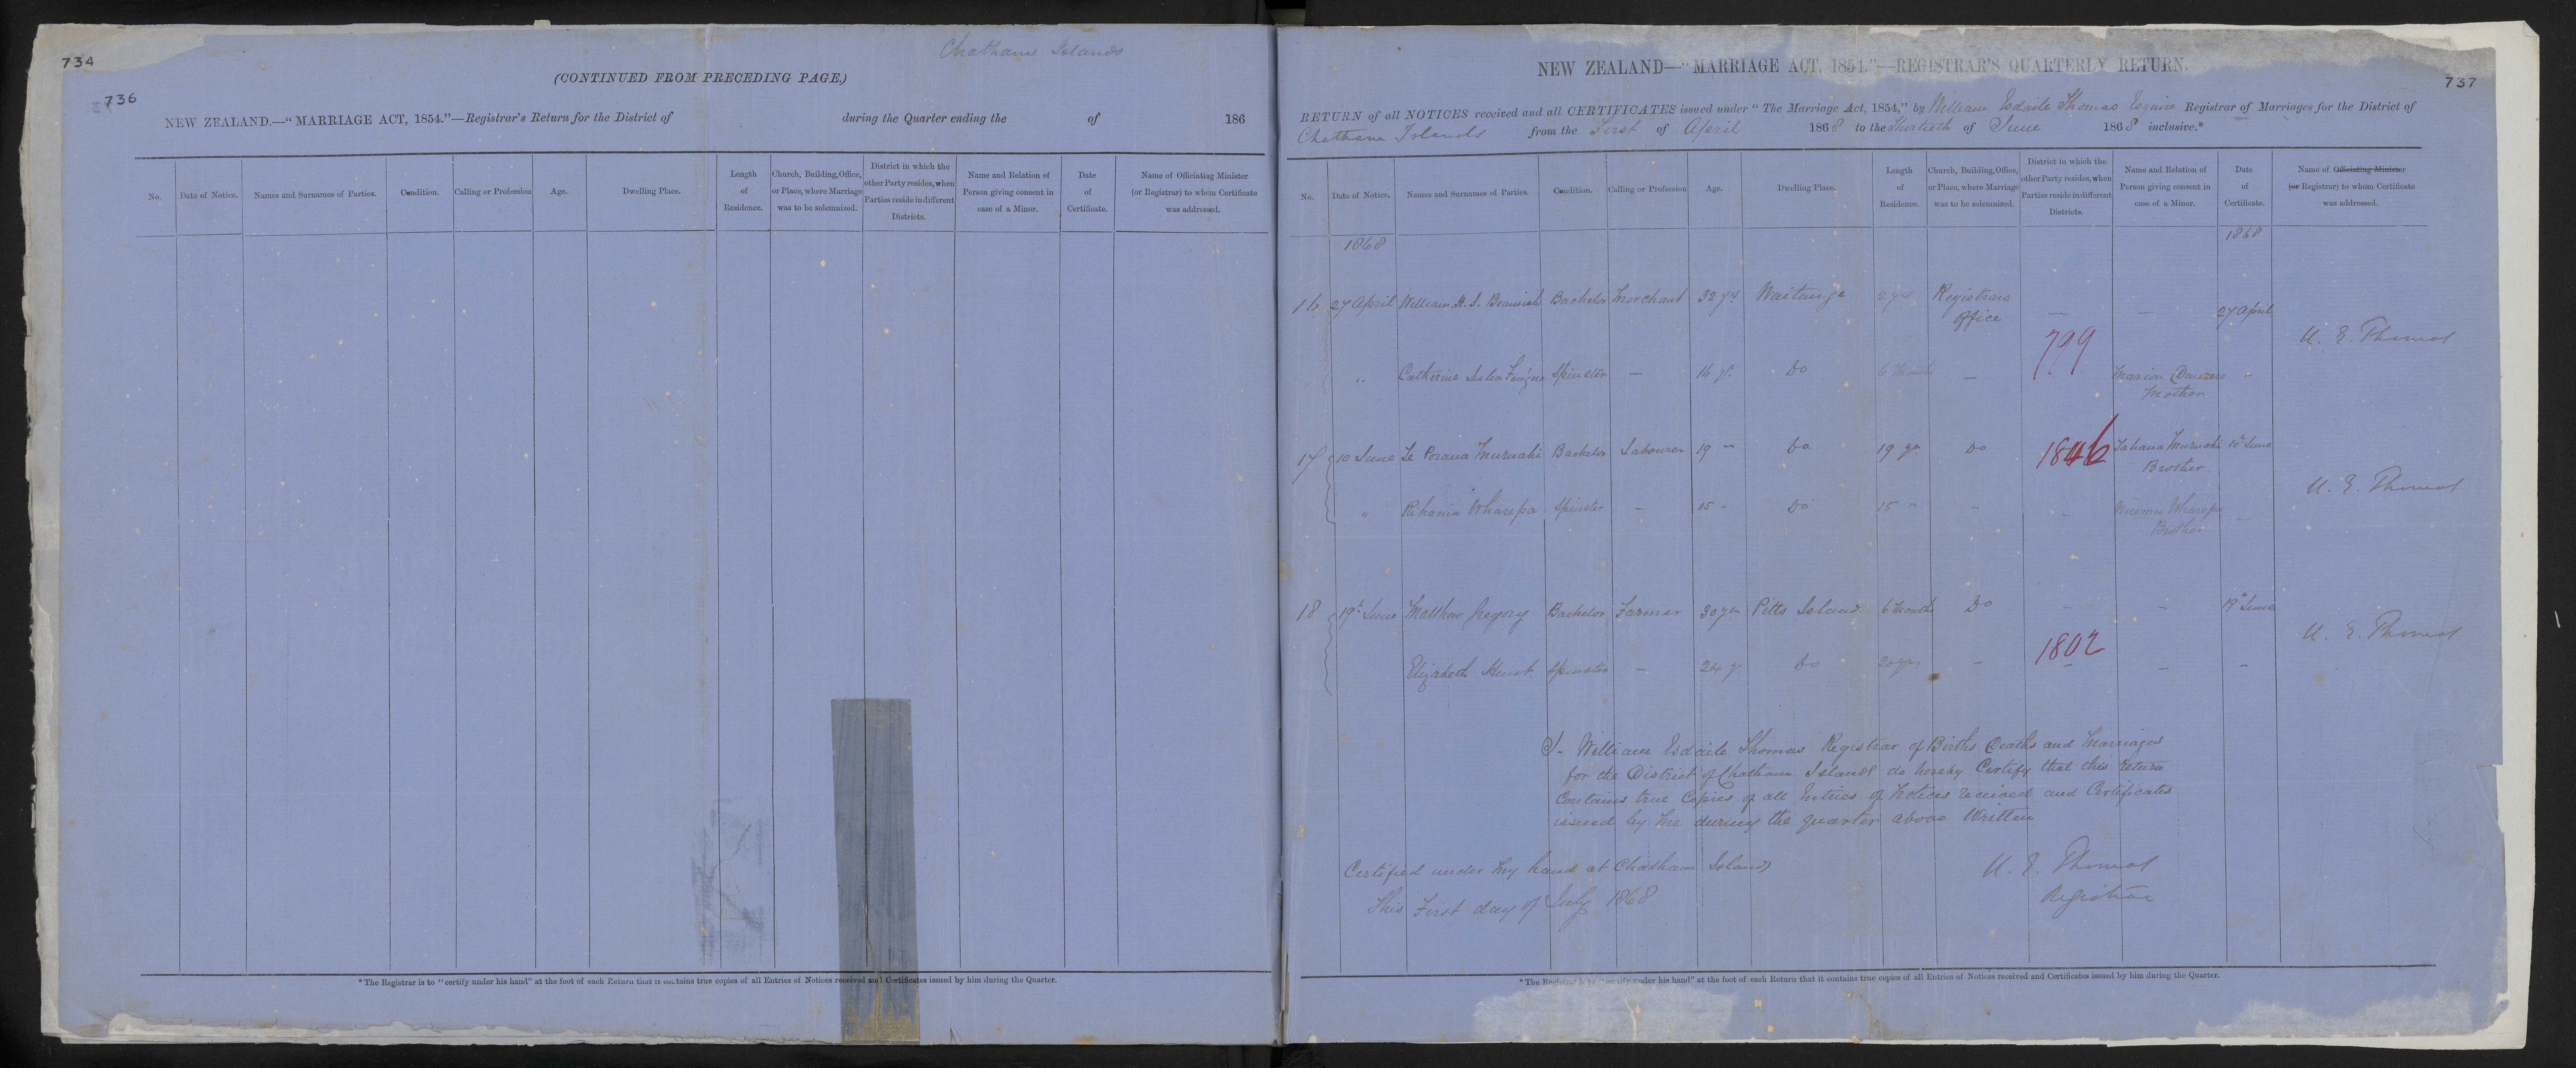 734
736
Chatham Islands
(CONTINUED FROM PRECEDING PAGE.)
NEW ZEALAND.—"MARRIAGE ACT, 1854."—Registrar's Return for the District of during the Quarter ending the of 186
No.
Date of Notice.
Names and Surnames of Parties.
Condition.
Calling or Profession
Age.
Dwelling Place.
Length
of
Residence.
Church, Building, Office,
or Place, where Marriage
was to be solemnized.
District in which the
other Party resides, when
Parties reside in different
Districts.
Name and Relation of
Person giving consent in
case of a Minor.
Date
of
Certificate.
Name of Officiating Minister
(or Registrar) to whom Certificate
was addressed.
* The Registrar is to "certify under his hand" at the foot of each Return that it contains true copies of all Entries of Notices received and Certificates issued by him during the Quarter.
737
NEW ZEALAND—"MARRIAGE ACT, 1854."—REGISTRAR'S QUARTERLY RETURN.
RETURN of all NOTICES received and all CERTIFICATES issued under "The Marriage Act, 1854," by William Esdaile Thomas Esquire Registrar of Marriages for the District of
Chatham Islands from the First of April 1868 to the Thirtieth of June 1868 inclusive.*
No.
Date of Notice.
Names and Surnames of Parties.
Condition.
Calling or Profession
Age.
Dwelling Place.
Length
of
Residence.
Church, Building, Office,
or Place, where Marriage
was to be solemnized.
District in which the
other Party resides, when
Parties reside in different
Districts.
Name and Relation of
Person giving consent in
case of a Minor.
Date
of
Certificate.
Name of Officiating Minister
(or Registrar) to whom Certificate
was addressed.
1868 1868
16 27 April William H. S. Bachelor Merchant 32 yrs Waitangi 2 yrs Registrars Office — — 27 April
W. E. Thomas
799
" Catherine Spinster — 16 y. Do 6 Months — Marion Mother -
17 10 June Te Poraua Muruahi Bachelor Labourer 19 " Do 19 yrs Do 1846 Tahana Muruahi Brother 10th June
W. E. Thomas
" Rihania Wharepa Spinster - 15 " Do 15 " - - Wharepa Brother —
18 19th June Matthew Gregory Bachelor Farmer 30 yrs Pitts Island 6 Months Do - - 19th June
W. E. Thomas
1802
Elizabeth Hunt Spinster - 24 y. Do 20 yrs - — -
I. William Esdaile Thomas Registrar of Births Deaths and Marriages
for the District of Chatham Islands do hereby Certify that this Return
Contains true Copies of all Entries of Notices received and Certificates
issued by me during the quarter above Written
Certified under my hand at Chatham Islands
This First day of July 1868
W. E. Thomas
Registrar
* The Registrar is to "certify under his hand" at the foot of each Return that it contains true copies of all Entries of Notices received and Certificates issued by him during the Quarter.